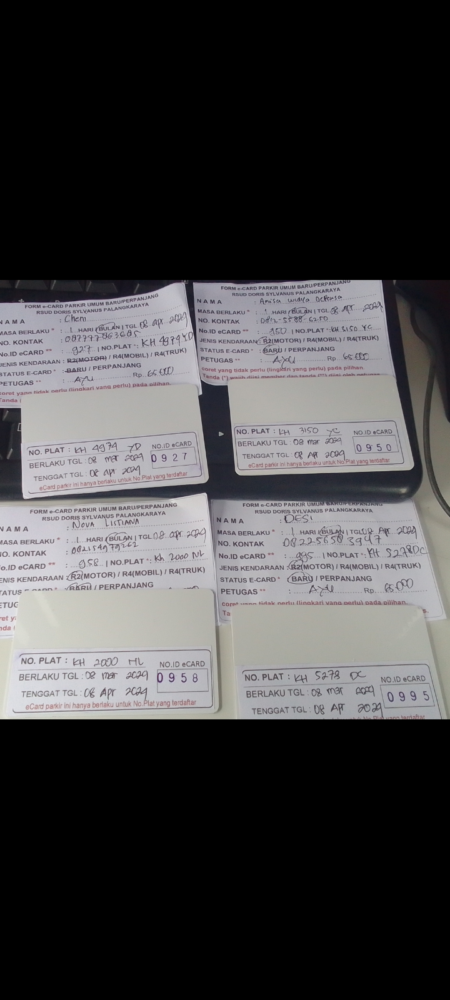 FORM e-CARD PARKIR UMUM BARU/PERPANJANG
RSUD DORIS SYLVANUS PALANGKARAYA
NAMA :
MASA BERLAKU * : 1 HARI/BULAN | TGL 08 Apr 2029
NO. KONTAK :
No.ID eCARD ** : 927 | NO.PLAT : KH 4974 YD
JENIS KENDARAAN : R2(MOTOR) / R4(MOBIL) / R4(TRUK)
STATUS E-CARD * : BARU / PERPANJANG
PETUGAS ** : AYU Rp. 65.000
NO. PLAT : KH 4974 YD
NO.ID eCARD
BERLAKU TGL : 08 Mar 2029
0927
TENGGAT TGL : 08 Apr 2029
eCard parkir ini hanya berlaku untuk No.Plat yang terdaftar
FORM e-CARD PARKIR UMUM BARU/PERPANJANG
RSUD DORIS SYLVANUS PALANGKARAYA
NAMA :
MASA BERLAKU * : 1 HARI/BULAN | TGL 08 Apr 2029
NO. KONTAK :
No.ID eCARD ** : 950 | NO.PLAT : KH 3150 YC
JENIS KENDARAAN : R2(MOTOR) / R4(MOBIL) / R4(TRUK)
STATUS E-CARD * : BARU / PERPANJANG
PETUGAS ** : AYU Rp. 65.000
coret yang tidak perlu (lingkari yang perlu) pada pilihan
NO. PLAT : KH 3150 YC
NO.ID eCARD
BERLAKU TGL : 08 Mar 2029
0950
TENGGAT TGL : 08 Apr 2029
eCard parkir ini hanya berlaku untuk No.Plat yang terdaftar
FORM e-CARD PARKIR UMUM BARU/PERPANJANG
RSUD DORIS SYLVANUS PALANGKARAYA
NAMA : Nova Listiana
MASA BERLAKU * : 1 HARI/BULAN | TGL 08 Apr 2029
NO. KONTAK :
No.ID eCARD ** : 958 | NO.PLAT : KH 2000 NL
JENIS KENDARAAN : R2(MOTOR) / R4(MOBIL) / R4(TRUK)
STATUS E-CARD * : BARU / PERPANJANG
NO. PLAT : KH 2000 NL
NO.ID eCARD
BERLAKU TGL : 08 Mar 2029
0958
TENGGAT TGL : 08 Apr 2029
eCard parkir ini hanya berlaku untuk No.Plat yang terdaftar
FORM e-CARD PARKIR UMUM BARU/PERPANJANG
RSUD DORIS SYLVANUS PALANGKARAYA
NAMA : DESI
MASA BERLAKU * : 1 HARI/BULAN | TGL 08 Apr 2029
NO. KONTAK : 082256583947
No.ID eCARD ** : 995 | NO.PLAT : KH 5278 DC
JENIS KENDARAAN : R2(MOTOR) / R4(MOBIL) / R4(TRUK)
STATUS E-CARD * : BARU / PERPANJANG
PETUGAS ** : AYU Rp. 65.000
coret yang tidak perlu (lingkari yang perlu) pada pilihan
NO. PLAT : KH 5278 DC
NO.ID eCARD
BERLAKU TGL : 08 Mar 2029
0995
TENGGAT TGL : 08 Apr 2029
eCard parkir ini hanya berlaku untuk No.Plat yang terdaftar